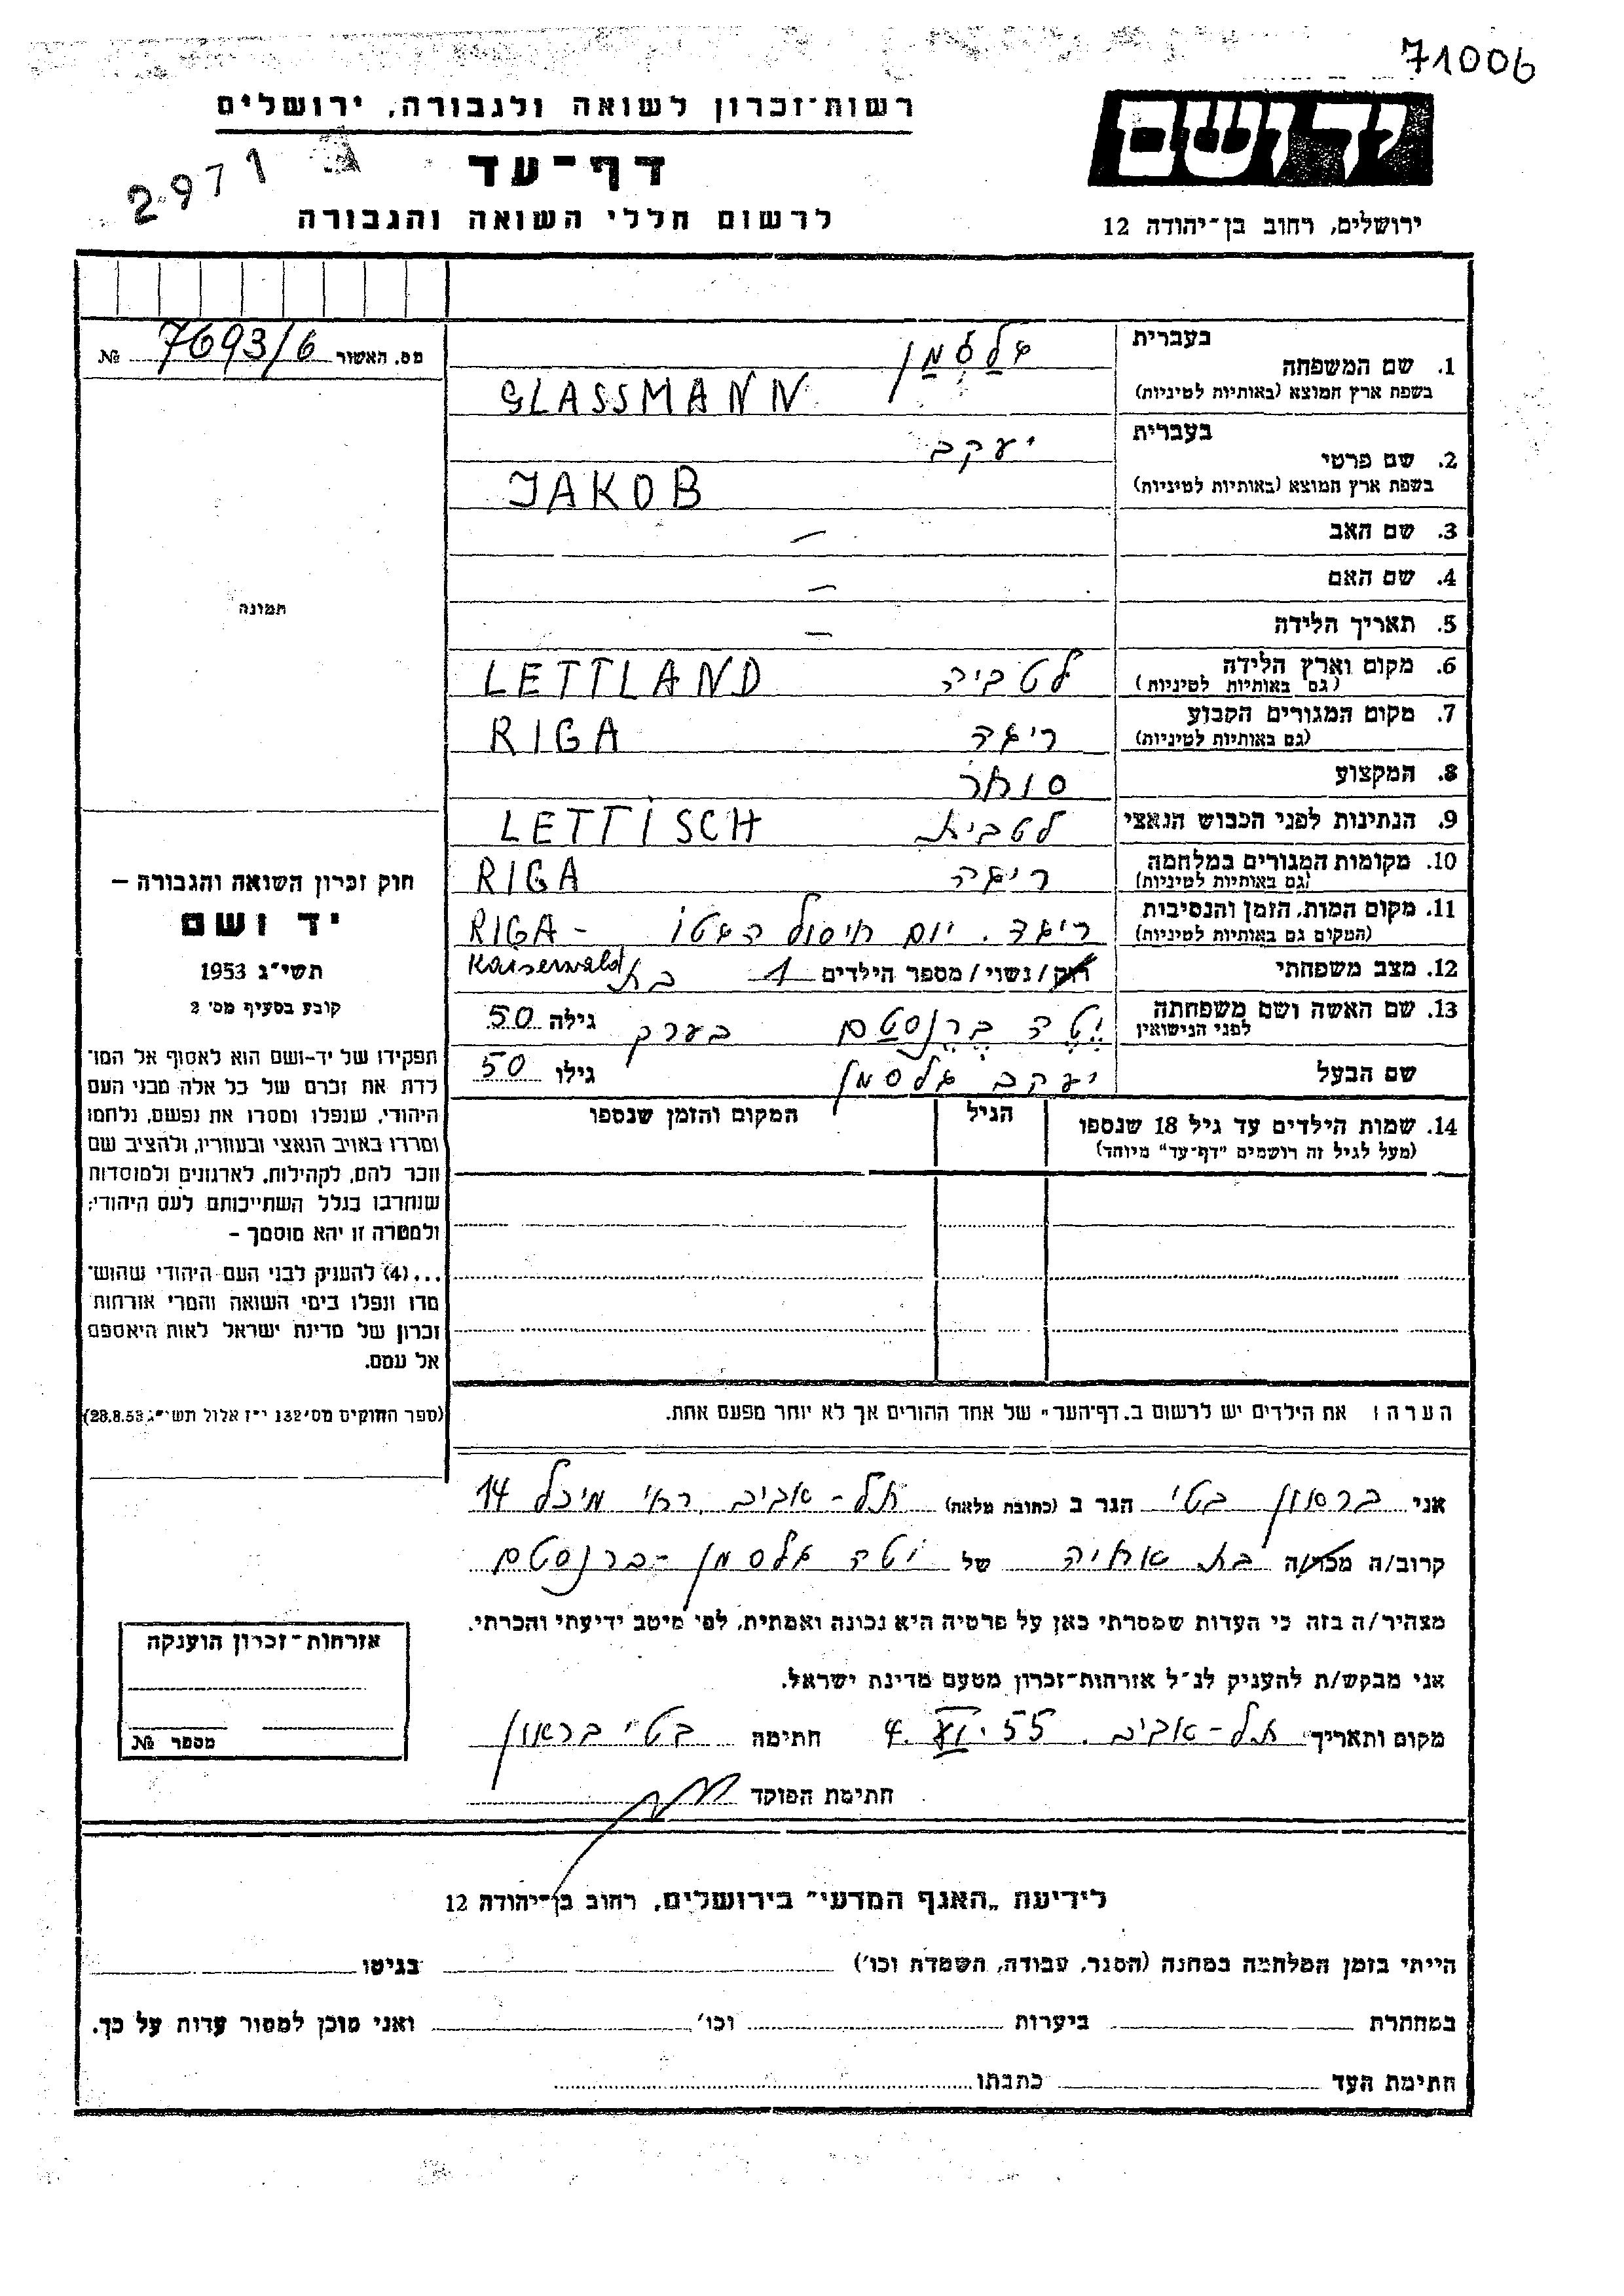 71006
רשות־זכרון לשואה ולגבורה, ירושלים
יד ושם
דף־עד
2971
לרשום חללי השואה והגבורה
ירושלים, רחוב בן־יהודה 12
מס. האשור 7693/6 №
בעברית
1. שם המשפחה גלסמן
בשפת ארץ המוצא (באותיות לטיניות) GLASSMANN
בעברית
2. שם פרטי יעקב
בשפת ארץ המוצא (באותיות לטיניות) JAKOB
3. שם האב —
4. שם האם —
5. תאריך הלידה —
תמונה
6. מקום וארץ הלידה לטביה LETTLAND
(גם באותיות לטיניות)
7. מקום המגורים הקבוע ריגה RIGA
(גם באותיות לטיניות)
8. המקצוע סוחר
9. הנתינות לפני הכבוש הנאצי לטבית LETTISCH
10. מקומות המגורים במלחמה ריגה RIGA
(גם באותיות לטיניות)
11. מקום המות, הזמן והנסיבות ריגה. יום חיסול הגטו RIGA-
(המקום גם באותיות לטיניות) Kaiserwald
12. מצב משפחתי רוק/נשוי/מספר הילדים 1 בת
13. שם האשה ושם משפחתה יטה ברנסטם בערך גילה 50
לפני הנישואין
שם הבעל יעקב גלסמן גילו 50
14. שמות הילדים עד גיל 18 שנספו הגיל המקום והזמן שנספו
(מעל לגיל זה רושמים "דף־עד" מיוחד)
הערה: את הילדים יש לרשום ב„דף־העד" של אחד ההורים אך לא יותר מפעם אחת.
חוק זכרון השואה והגבורה –
יד ושם
תשי"ג 1953
קובע בסעיף מס' 2
תפקידו של יד־ושם הוא לאסוף אל המו־
לדת את זכרם של כל אלה מבני העם
היהודי, שנפלו ומסרו את נפשם, נלחמו
ומרדו באויב הנאצי ובעוזריו, ולהציב שם
וזכר להם, לקהילות, לארגונים ולמוסדות
שנחרבו בגלל השתייכותם לעם היהודי;
ולמטרה זו יהא מוסמך –
...(4) להעניק לבני העם היהודי שהוש־
מדו ונפלו בימי השואה והמרי אזרחות
זכרון של מדינת ישראל לאות היאספם
אל עמם.
(ספר החוקים מס' 132 י"ז אלול תשי"ג 28.8.53)
אני בראון בטי הגר ב (כתובת מלאה) תל-אביב, רח' מיכל 14
קרוב/ה מכר/ה בת אחיה של יטה גלסמן-ברנסטם
מצהיר/ה בזה כי העדות שמסרתי כאן על פרטיה היא נכונה ואמתית, לפי מיטב ידיעתי והכרתי.
אני מבקש/ת להעניק לנ"ל אזרחות־זכרון מטעם מדינת ישראל.
מקום ותאריך תל-אביב. 4. 55 חתימה בטי בראון
חתימת הפוקד
אזרחות־זכרון הוענקה
מספר №
לידיעת „האגף המדעי" בירושלים, רחוב בן־יהודה 12
הייתי בזמן המלחמה במחנה (הסגר, עבודה, השמדה וכו') בגיטו
במחתרת ביערות וכו' ואני מוכן למסור עדות על כך.
חתימת העד כתבתו